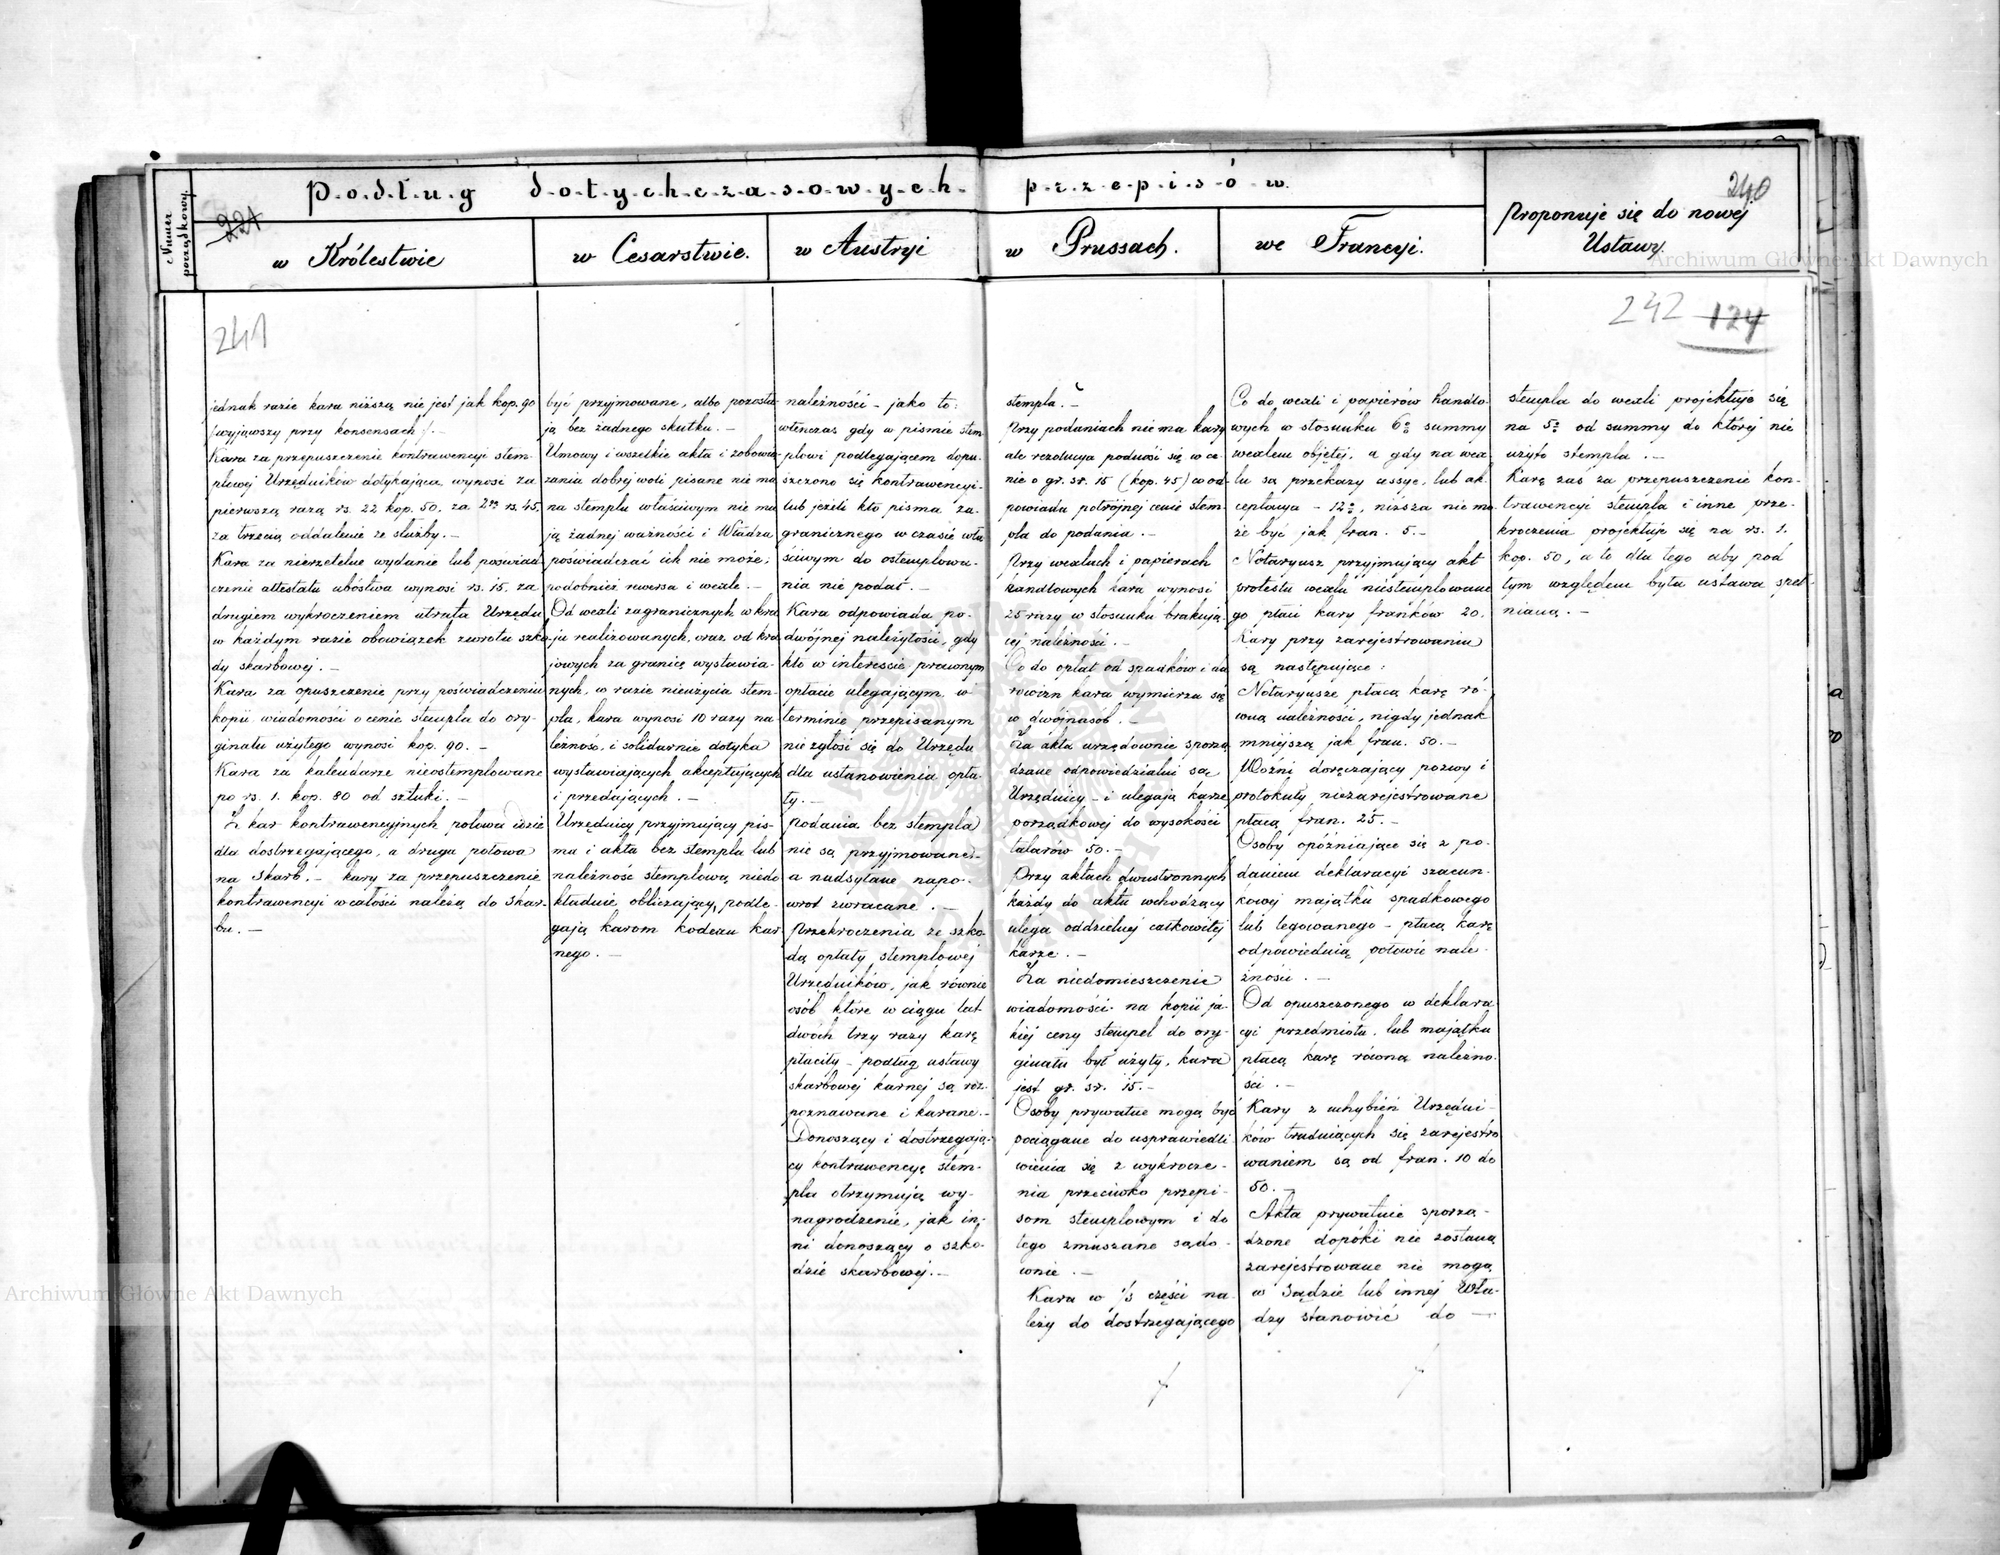 Podług dotychczasowych przepisów.
Numer
porządkowy.
221
240
w Królestwie
w Cesarstwie.
w Austryi
w Prussach.
we Francyi.
Proponuje się do nowej
Ustawy.
Archiwum Główne Akt Dawnych
241
242 124
jednak razie kara niższą nie jest jak kop. 90
(wyjąwszy przy konsensach). —
Kara za przepuszczenie kontrawencyi stem-
plowej Urzędników dotykająca wynosi za
pierwszą razą rs. 22 kop. 50. za 2gą rs. 45.
za trzecią oddalenie ze służby. —
Kara za nierzetelne wydanie lub poświad-
czenie attestatu ubóstwa wynosi rs. 15. za
drugiem wykroczeniem utrata Urzędu
w każdym razie obowiązek zwrotu szko-
dy skarbowej. —
Kara za opuszczenie przy poświadczeniu
kopii wiadomości o cenie stempla do ory-
ginału użytego wynosi kop. 90. —
Kara za kalendarze nieostemplowane
po rs. 1. kop. 80 od sztuki. —
Z kar kontrawencyjnych połowa idzie
dla dostrzegającego, a druga połowa
na Skarb. — kary za przepuszczenie
kontrawencyi w całości należą do Skar-
bu. —
być przyjmowane, albo pozosta-
ją bez żadnego skutku. —
Umowy i wszelkie akta i zobowią-
zania dobrej woli pisane nie na
na stemplu właściwym nie ma
ją żadnej ważności i Władza
poświadczać ich nie może,
podobnież rewersa i wexle. —
Od wexli zagranicznych w kra
ju realizowanych, oraz od kra
jowych za granicę wystawia-
nych, w razie nieużycia stem-
pla, kara wynosi 10 razy na
leżność, i solidarnie dotyka
wystawiających akceptujących
i przedających. —
Urzędnicy przyjmujący pis-
ma i akta bez stempla lub
należność stemplową niedo
kładnie obliczający, podle-
gają karom kodexu kar
nego. —
należności – jako to:
wtenczas gdy w piśmie stem
plowi podlegającem dopu-
szczono się kontrawencyi-
lub jeżeli kto pisma za-
granicznego w czasie wła
ściwym do ostemplowa-
nia nie podał. —
Kara odpowiada po-
dwójnej należytości, gdy
kto w interessie prawnym
opłacie ulegającym, w
terminie przepisanym
nie zgłosi się do Urzędu
dla ustanowienia opła-
ty. —
Podania bez stempla
nie są przyjmowane –
a nadsyłane napo-
wrót zwracane. —
Przekroczenia ze szko-
dą opłaty stemplowej
Urzędników, jak równie
osób które w ciągu lat
dwóch trzy razy karę
płaciły – podług ustawy
skarbowej karnej są roz-
poznawane i karane. —
Donoszący i dostrzegają-
cy kontrawencyę stem-
pla otrzymują wy-
nagrodzenie, jak in-
ni donoszący o szko-
dzie skarbowej. —
stempla. —
Przy podaniach nie ma kary
ale rezolucya podnosi się w ce-
nie o gr. sr. 15 (kop. 45) co od-
powiada potrójnej cenie stem-
pla do podania. —
Przy wexlach i papierach
handlowych kara wynosi
25 razy w stosunku brakują-
cej należności. —
Co do opłat od spadków i da
rowizn kara wymierza się
w dwójnasób. —
Za akta urzędownie sporzą
dzane odpowiedzialni są
Urzędnicy – i ulegają karze
porządkowej do wysokości
talarów 50. —
Przy aktach dwustronnych
każdy do aktu wchodzący
ulega oddzielnej całkowitej
karze. —
Za niedomieszczenie
wiadomości na kopii ja-
kiej ceny stempel do ory-
ginału był użyty, kara
jest gr. sr. 15. —
Osoby prywatne mogą być
pociągane do usprawiedli
wienia się z wykrocze-
nia przeciwko przepi-
som stemplowym i do
tego zmuszane sądo-
wnie. —
Kara w 1/3 części na-
leży do dostrzegającego
Co do wexli i papierów handlo
wych w stosunku 6% summy
wexlem objętej, a gdy na wex
lu są przekazy cessye, lub ak-
ceptacya – 12%, niższa nie mo
że być jak fran. 5. —
Notaryusz przyjmujący akt
protestu wexlu niestemplowane
go płaci kary franków 20.
Kary przy zarejestrowaniu
są następujące:
Notaryusze płacą karę ró-
wną należności, nigdy jednak
mniejszą jak fran. 50. —
Woźni doręczający pozwy i
protokuły niezarejestrowane
płacą fran. 25. —
Osoby opóźniające się z po-
daniem deklaracyi szacun-
kowej majątku spadkowego
lub legowanego – płacą karę
odpowiednią połowie nale-
żności. —
Od opuszczonego w deklara
cyi przedmiotu, lub majątku
płacą karę równą należno-
ści. —
Kary z uchybień Urzędni-
ków trudniących się zarejestro
waniem są od fran. 10 do
50. —
Akta prywatnie sporzą-
dzone dopóki nie zostaną
zarejestrowane nie mogą
w Sądzie lub innej Wła-
dzy stanowić do —
stempla do wexli projektuje się
na 5% od summy do której nie
użyto stempla. —
Karę zaś za przepuszczenie kon-
trawencyi stempla i inne prze-
kroczenia projektuje się na rs. 1.
kop. 50, a to dla tego aby pod
tym względem była ustawa speł-
nianą. —
Archiwum Główne Akt Dawnych